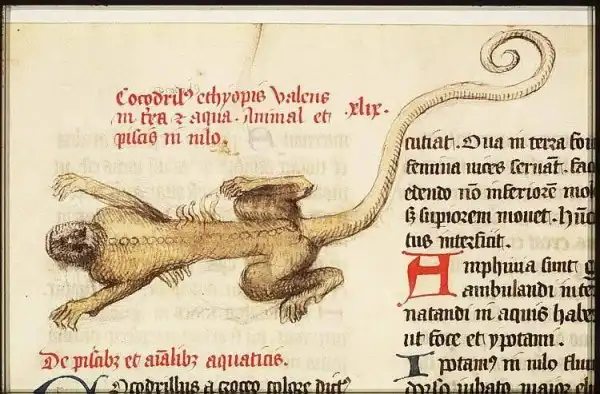 Cocodril⁹ ethyopis valens
in tr̄a ⁊ aqua. Animal et
piscis in nilo.
·xlix·
cutiat. Qua in terra
femina uices seruāt.
edendo nō inferiorē
s̄ supiorem mouet. hūc
tus interficit.
Amphiuia sunt
ambulandi in
natandi in aquis habe
ut foce et ypotami.
Ipotam⁹ in nilo
dorso iubato maior
De piscibz et aīalibz aquaticis.
Cocodrillus a croceo colore dict⁹